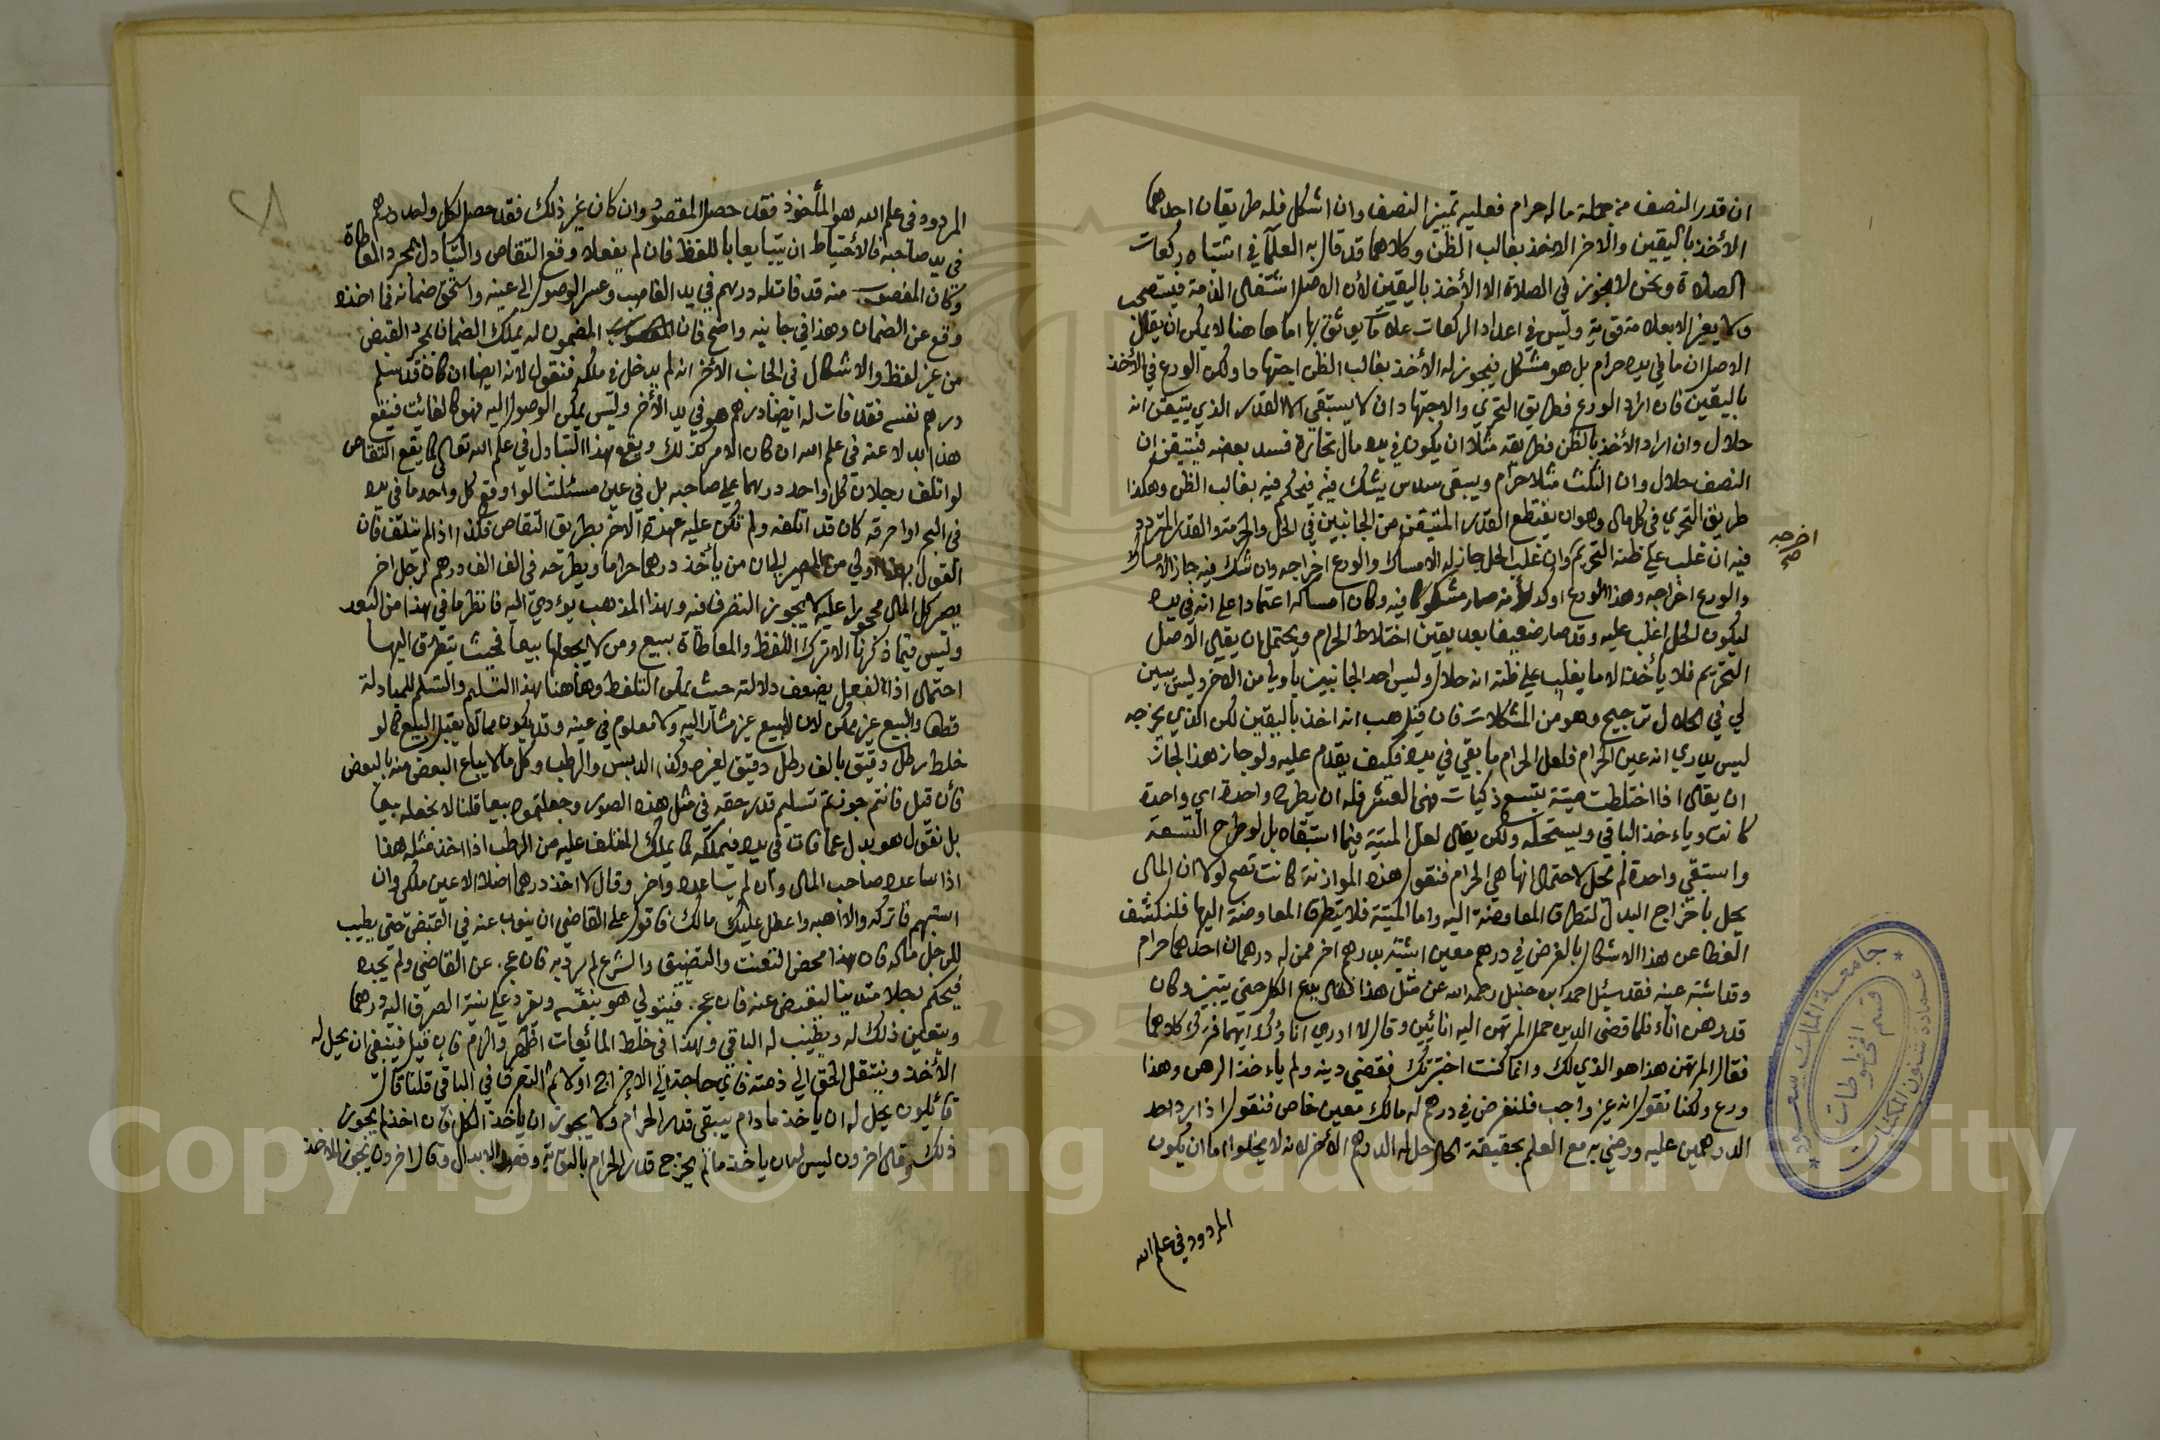 ان قدر النصف من جملة ماله حرام فعليه تمييز النصف وان اشكل فله طريقان احدهما
الأخذ باليقين والآخر الاخذ بغالب الظن وكلاهما قد قال به العلمآ في اشتباه ركعات
الصلاة ونحن لا نجوز في الصلاة الا الأخذ باليقين لأن الاصل اشتغال الذمة فيستصحب
ولا يغير الا بعلامة قوية وليس في اعداد الركعات علامة يوثق بها اما ها هنا لا يمكن ان يقال
الاصل ان ما في يده حرام بل هو مشكل فيجوز له الأخذ بغالب الظن اجتهادا ولكن الورع في الأخذ
باليقين فان اراد الورع فطريق التحري والاجتهاد ان لا يستبقى الا القدر الذي يتيقن انه
حلال وان اراد الأخذ بالظن فطريقه مثلا ان يكون في يده مال تجارة فسد بعضه فيتيقن ان
النصف حلال وان الثلث مثلا حرام ويبقى سدس يشك فيه فيحكم فيه بغالب الظن وهكذا
طريق التحري في كل مال وهو ان يقتطع القدر المتيقن من الجانبين في الحل والحرمة والقدر المتردد
فيه ان غلب على ظنه التحريم وان غلب الحل جاز له الامساك والورع اخراجه وان شك فيه جاز الامساك
اخرجه صح
والورع اخراجه وهذا الورع اوكد لأنه صار مشكوكا فيه وكان امساكه اعتمادا على انه في يده
ليكون الحل اغلب عليه وقد صار ضعيفا بعد يقين اختلاط الحرام ويحتمل ان يقال الاصل
التحريم فلا يأخذ الا ما يغلب على ظنه انه حلال وليس احد الجانبين باولى من الآخر وليس يبين
لي في الحال ترجيح وهو من المشكلات فان قيل هب انه اخذ باليقين لكن الذي يخرجه
ليس يدري انه عين الحرام فلعل الحرام ما بقي في يده فكيف يقدم عليه ولو جاز هذا لجاز
ان يقال اذا اختلطت ميتة بتسع ذكيات فهي العشر فله ان يطرح واحدة اي واحدة
كانت وياءخذ الباقي ويستحله ولكن يقال لعل الميتة فيما استبقاه بل لو طرح التسعة
واستبقى واحدة لم تحل لاحتمال انها هي الحرام فنقول هذه الموازنة كانت تصح لولا ان المال
يحل باخراج البدل لتطرق المعاوضة اليه واما الميتة فلا يتطرق المعاوضة اليها فلنكشف
الغطا عن هذا الاشكال بالفرض في درهم معين اشتبه بدرهم اخر فمن له درهمان احدهما حرام
وقد اشتبه عينه فقد سئل احمد بن حنبل رحمه الله عن مثل هذا فقال يدع الكل حتى يتبين وكان
قد رهن اناء فلما قضى الدين حمل المرتهن اليه انائين وقال لا ادري اناؤك ايهما فترك كلاهما
فقال المرتهن هذا هو الذي لك وانما كنت اختبرتك فقضى دينه ولم ياءخذ الرهن وهذا
ورع ولكنا نقول انه غير واجب فلنفرض في درهم له مالك معين خاص فنقول اذا رد احد
الدرهمين عليه ورضي به مع العلم بحقيقة الحال حل له الدرهم الأخر لانه لا يخلوا اما ان يكون
المردود في علم الله
المردود في علم الله هو المأخوذ فقد حصل المقصود وان كان غير ذلك فقد حصل لكل واحد درهم
في يد صاحبه فالأحتياط ان يتبايعا باللفظ فان لم يفعلا وقع التقاص والتبادل بمجرد المعاطاة
وكان المغصوب منه قد فات له درهم في يد الغاصب وعسر الوصول الى عينه واستحق ضمانه فما اخذه
وقع عن الضمان وهذا في جانبه واضح فان المضمون له يملك الضمان بمجرد القبض
من غير لفظ والاشكال في الجانب الآخر انه لم يدخل في ملكه فنقول لانه ايضا ان كان قد سلم
درهم نفسه فقد فات له ايضا درهم هو في يد الأخر وليس يمكن الوصول اليه فهو كالفائت فيقع
هذا بدلا عنه في علم الله ان كان الامر كذلك ويقع هذا التبادل في علم الله تعالى كما يقع التقاص
لو اتلف رجلان كل واحد درهما على صاحبه بل في عين مسئلتنا لو اوقع كل واحد ما في يده
في البحر او احرقه كان قد اتلفه ولم تكن عليه عهدة الآخر بطريق التقاص فكذا اذا لم يتلف فان
القول بهذا اولى من المصير الى ان من يأخذ درهما حراما ويطرحه في الف الف درهم لرجل اخر
يصير كل المال محجورا عليه لا يجوز التصرف فيه وهذا المذهب يؤدي اليه فانظر ما في هذا من البعد
وليس فيما ذكرناه الا ترك اللفظ والمعاطاة بيع ومن لا يجعلها بيعا فحيث يتطرق اليها
احتمال اذ الفعل يضعف دلالته حيث يمكن التلفظ وهاهنا هذا التسليم والتسلم للمبادلة
قطعا والبيع غير ممكن لان المبيع غير مشار اليه ولا معلوم في عينه وقد يكون مما لا يقبل البيع كما لو
خلط رطل دقيق بالف رطل دقيق لغيره وكذا الدبس والرطب وكل ما لا يباع البعض منه بالبعض
فأن قيل فانتم جوزتم تسليم قدر حقه في مثل هذه الصور وجعلتموه بيعا قلنا لا نجعله بيعا
بل نقول هو بدل عما فات في يده فيملكه كما يملك المتلف عليه من الرطب اذا اخذ مثله هذا
اذا ساعده صاحب المال وان لم يساعده واخر وقال لا اخذ درهما اصلا الا عين ملكي وان
استبهم فاتركه والا اهبه واعطل عليك مالك فاقول على القاضي ان ينوب عنه في القبض حتى يطيب
للرجل ماله فان هذا محض التعنت والتضييق والشرع لم يرد به فان عجز عن القاضي ولم يجده
فيحكم رجلا متدينا ليقبض عنه فان عجز فيتولى هو بنفسه ويفرد على نية الصرف اليه درهما
ويتعين ذلك له ويطيب له الباقي وهكذا في خلط المائعات اظهر والزم فان قيل فينبغي ان يحل له
الأخذ وينتقل الحق الى ذمته فاي حاجة الى الاخراج اولا ثم التصرف في الباقي قلنا قال
قائلون يحل له ان ياخذ ما دام يبقى قدر الحرام ولا يجوز ان ياخذ الكل فان اخذ لم يجوز
ذلك وقال اخرون ليس له ان ياخذ ما لم يخرج قدر الحرام بالتوبة وقصد الابدال وقال اخرون يجوز الاخذ
جامعة الملك سعود
عمادة شئون المكتبات
قسم المخطوطات
Copyright © King Saud University